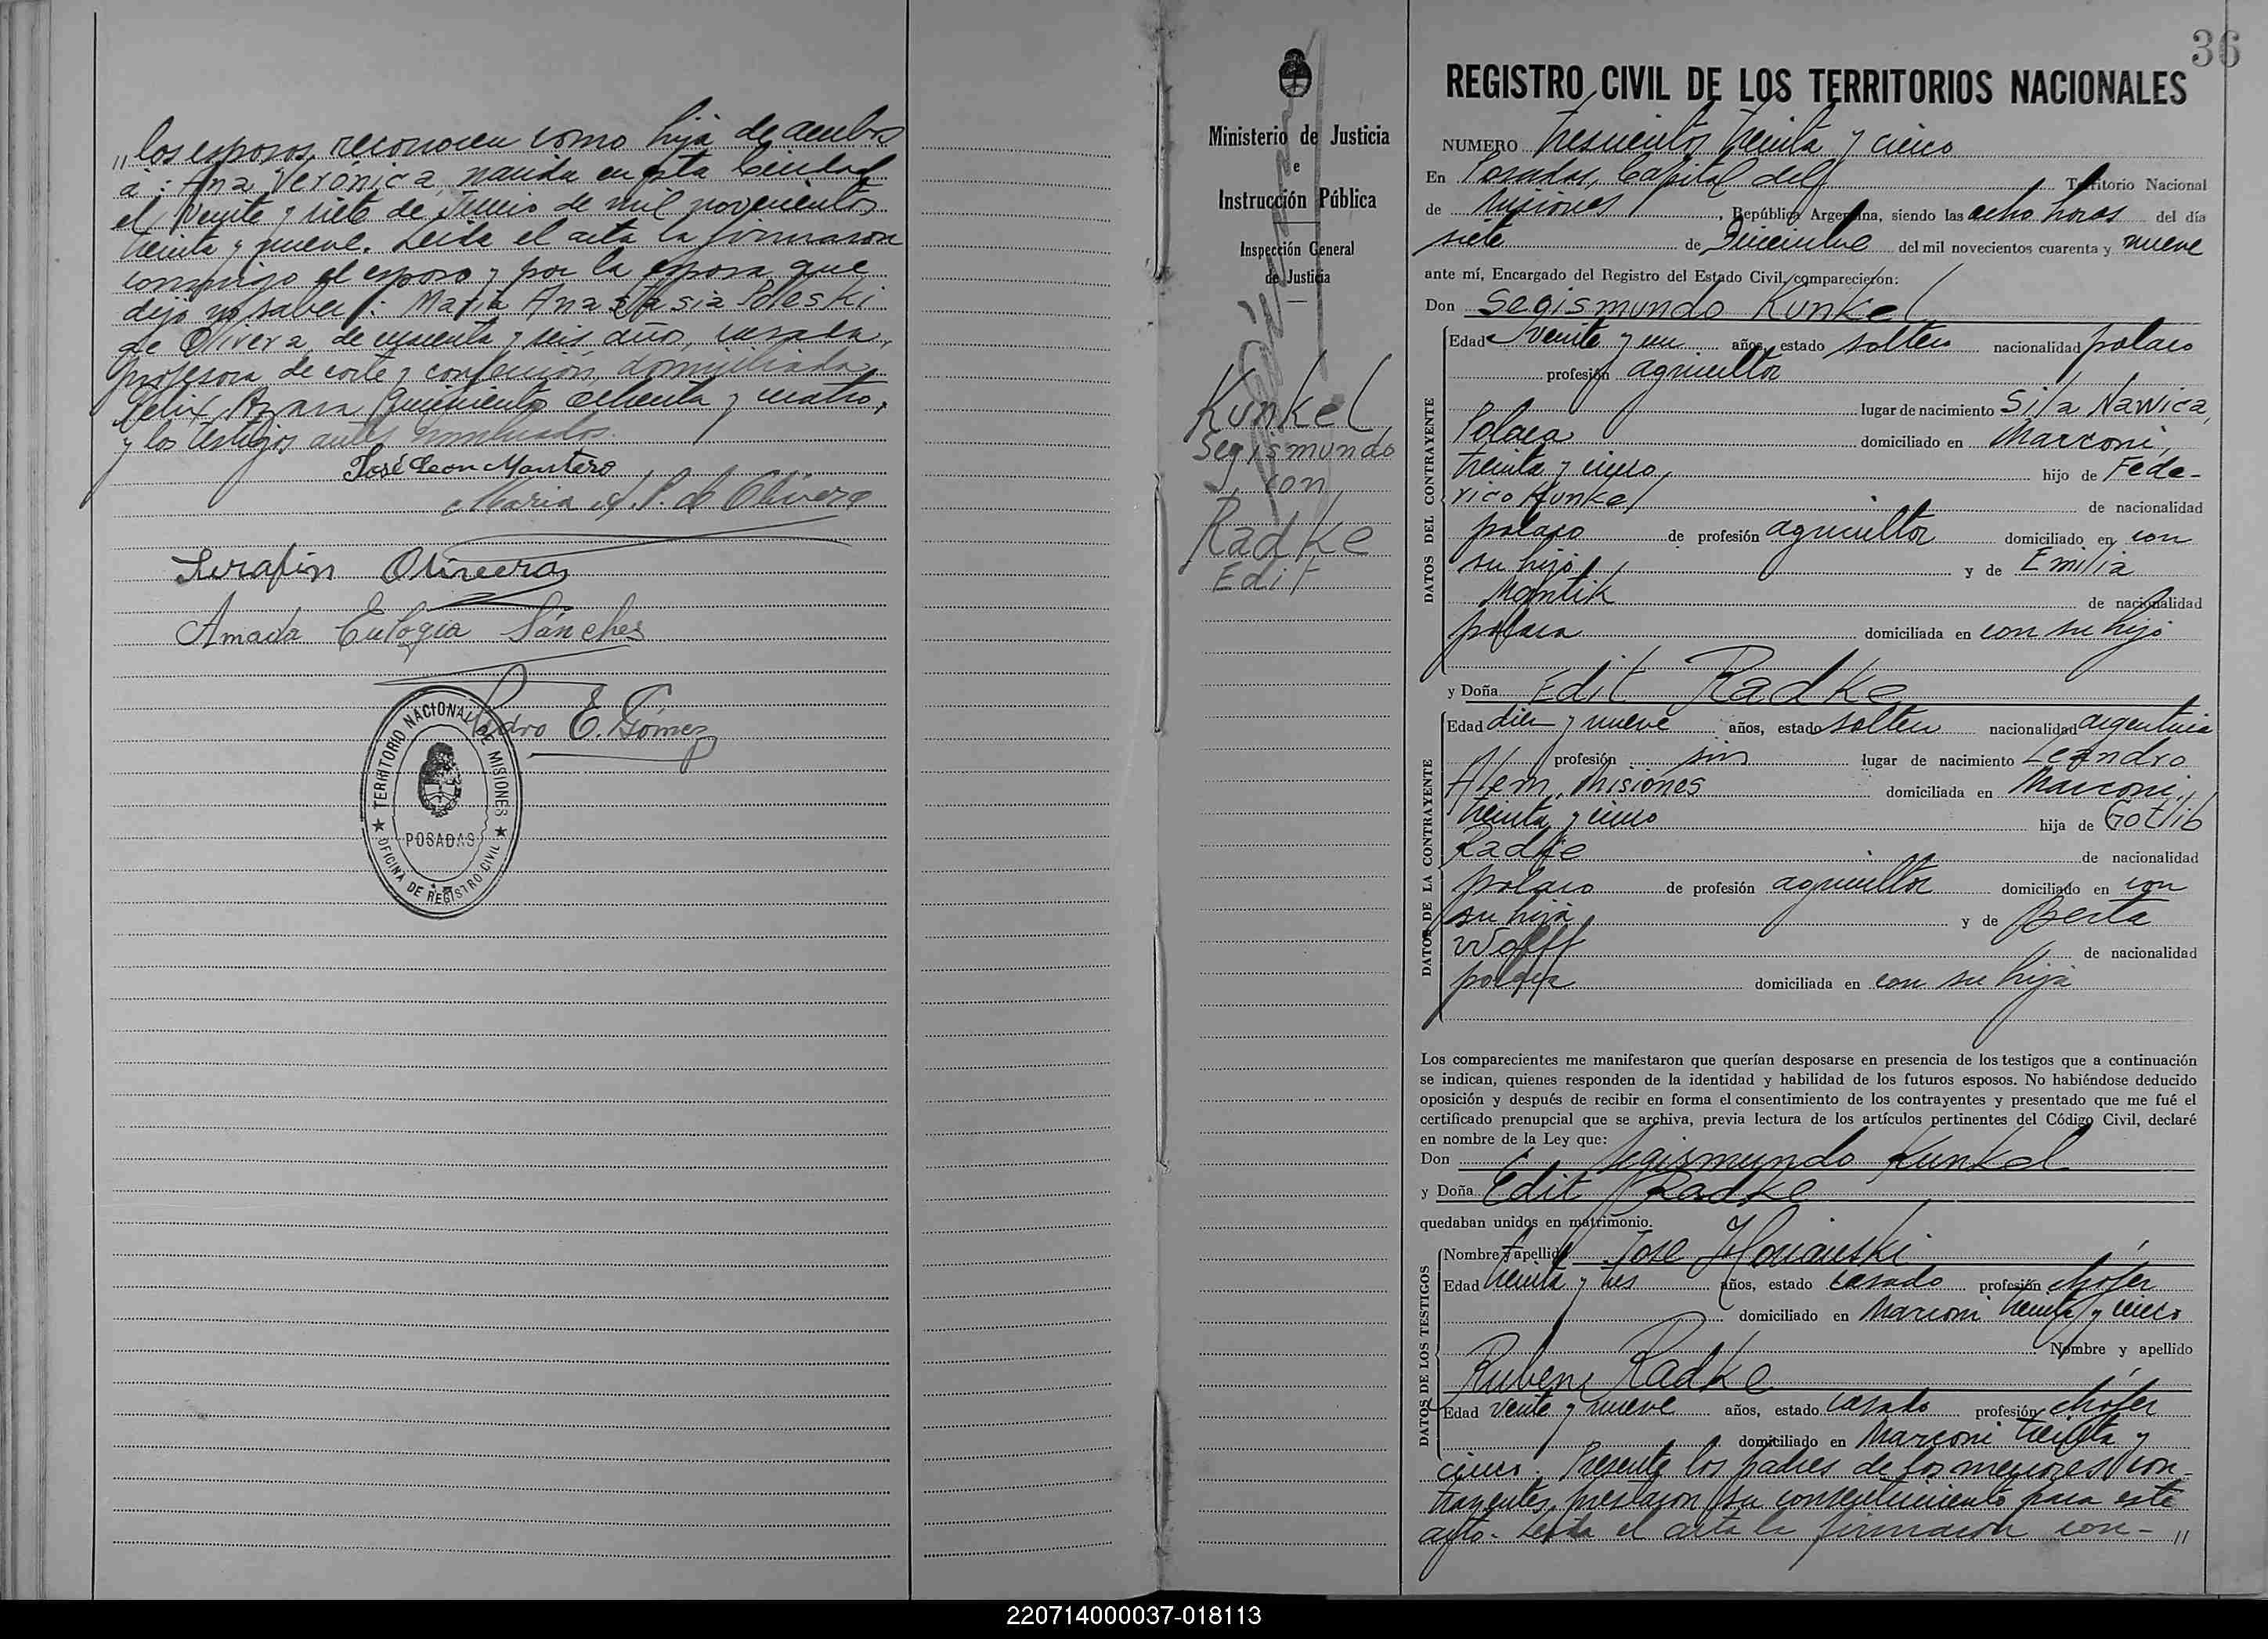 „los esposos, reconocen como hija de ambos
a: Ana Verónica, nacida en esta Ciudad
el veinte y siete de Junio de mil novecientos
treinta y nueve. Leida el acta la firmaron
conmigo el esposo y por la esposa que
dijo no saber: Maria Anastasia Poleski
de Olivera, de cuarenta y seis año, casada,
profesora de corte y confección, domiciliada
Felix Azara quinientos ochenta y cuatro,
y los testigos antes nombrados.
José Leon Montero
Maria A. P. de Olivera
Serafin Olivera
Amada Eulogia Sánchez
Pedro E. Gómez
TERRITORIO NACIONAL DE MISIONES
POSADAS
OFICINA DE REGISTRO CIVIL
Ministerio de Justicia
e
Instrucción Pública
Inspección General
de Justicia
Kunkel
Segismundo
con
Radke
Edit
36
REGISTRO CIVIL DE LOS TERRITORIOS NACIONALES
NUMERO trescientos treinta y cinco
En Posadas, Capital del Territorio Nacional
de Misiones, República Argentina, siendo las ocho horas del día
siete de Diciembre del mil novecientos cuarenta y nueve
ante mí, Encargado del Registro del Estado Civil, comparecieron:
Don Segismundo Kunkel
DATOS DEL CONTRAYENTE
Edad veinte y un años, estado soltero nacionalidad polaco
profesión agricultor
lugar de nacimiento Sila Nawica,
Polaca domiciliado en Marconi,
treinta y cinco, hijo de Fede-
rico Kunkel de nacionalidad
polaco de profesión agricultor domiciliado en con
su hijo y de Emilia
Mantik de nacionalidad
polaca domiciliada en con su hijo
y Doña Edit Radke
DATOS DE LA CONTRAYENTE
Edad diez y nueve años, estado soltera nacionalidad argentina
profesión sin lugar de nacimiento Leandro
Alem, Misiones domiciliada en Marconi,
treinta y cinco hija de Gotlib
Radke de nacionalidad
polaco de profesión agricultor domiciliado en con
su hija y de Berta
Wolff de nacionalidad
polaca domiciliada en con su hija
Los comparecientes me manifestaron que querían desposarse en presencia de los testigos que a continuación
se indican, quienes responden de la identidad y habilidad de los futuros esposos. No habiéndose deducido
oposición y después de recibir en forma el consentimiento de los contrayentes y presentado que me fué el
certificado prenupcial que se archiva, previa lectura de los artículos pertinentes del Código Civil, declaré
en nombre de la Ley que:
Don Segismundo Kunkel
y Doña Edit Radke
quedaban unidos en matrimonio.
DATOS DE LOS TESTIGOS
Nombre y apellido Jose
Edad treinta y tres años, estado casado profesión chofer
domiciliado en Marconi treinta y cinco
Nombre y apellido
Ruben Radke
Edad veinte y nueve años, estado casado profesión chofer
domiciliado en Marconi treinta y
cinco. Presente los padres de los menores con-
trayentes, prestaron su consentimiento para este
acto. Leida el acta la firmaron con- „
220714000037-018113